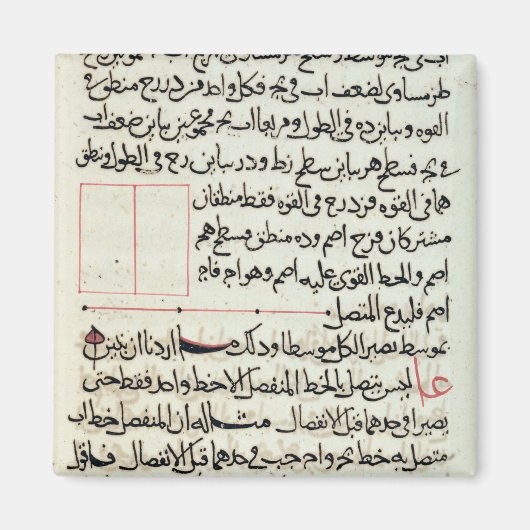 طز مساوى لضعف اب فى بج فكل واحد من د ز رح منطق فى
القوه ومباين ده فى الطول ومربعا اب بج مجموعين يباين ضعف اب
فى بج فسطح هر يباين سطح زط و در يباين رح فى الطول ومنطق
هما فى القوه فز د رح فى القوه فقط منطقان
مشتركان فزح اصم و ده منطق فسطح هح
اصم والخط القوى عليه اصم وهو اج فاج
اصم فليدع المتصل
بموسط يصير الكل موسطا وذلك ما اردنا ان نبين
عا ليس يتصل بالخط المنفصل الا خط واحد فقط حتى
يصيرا فى حدهما قبل الانفصال مثاله ان المنفصل خط اب
متصل به خط بج و اج جب فى حدهما قبل الانفصال فاقول